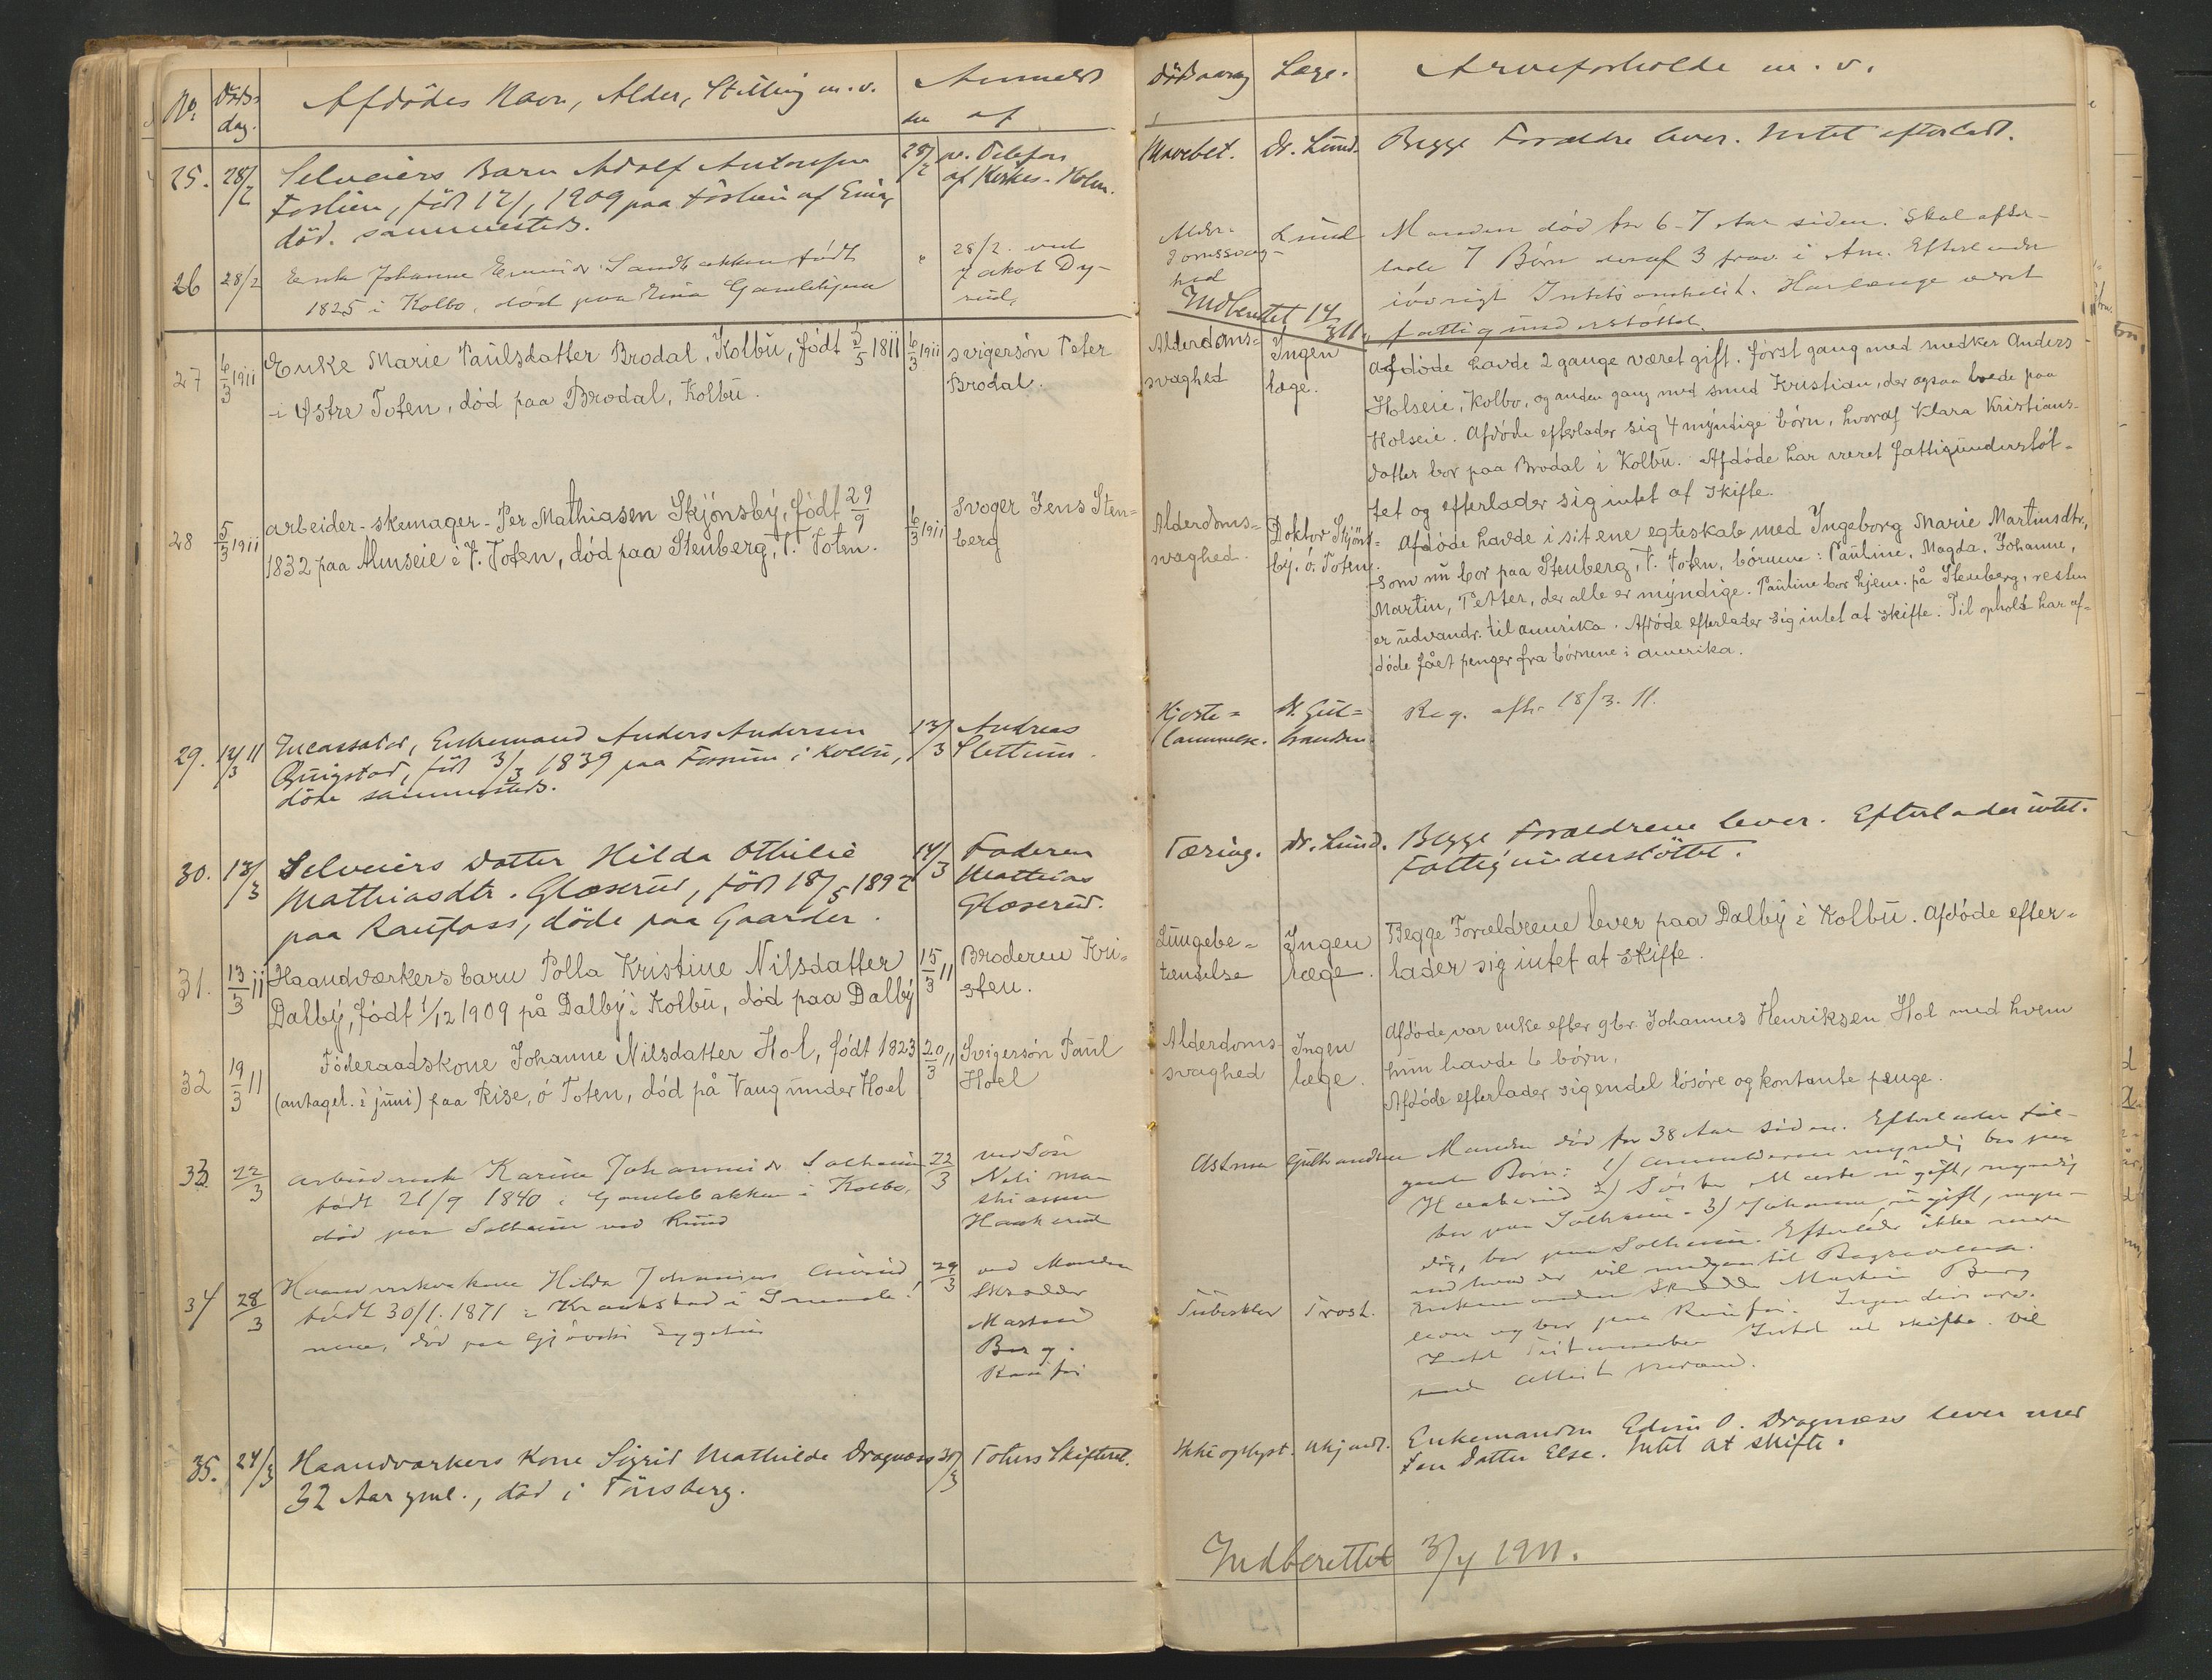 No. Döds-
dag.
Afdödes Navn, Alder, Stilling m. v.
Anmeldt
af
Dödsaarsag
Læge.
Arveforholde m. v.
25. 28/2
Selveiers Barn Adolf Antonsen
Foslien, född 12/1 1909 paa Foslien af Eina,
död. sammesteds.
28/2 pr. Telefon
af Kirkes. Holm.
Mavebet.
Dr. Lund.
Begge Forældre lever. Intet efterladt.
26 28/2
Enke Johanne Sandbakken født
1825 i Kolbo, død paa Eina Gamlehjem
" 28/2. ved
Jakob Dy-
rud.
Alder-
domssvag-
hed
Lund
Manden død for 6-7 Aar siden. Skal efter-
lade 7 Børn deraf 3 i Am. Efterlader
iøvrigt Intet Har længe været
fattigunderstøttet.
Indberettet 14/3 11.
27 6/3 1911
Enke Marie Paulsdatter Brodal, Kolbu, født 5/5 1811
i Østre Toten, død paa Brodal, Kolbu.
6/3 1911
svigersøn Peter
Brodal.
Alderdoms=
svaghed
Ingen
læge.
Afdøde havde 2 gange været gift. først gang med snedker Anders
Holseie, Kolbo, og anden gang med smed Kristian, der ogsaa boede paa
Holseie. Afdøde efterlader sig 4 myndige børn, hvoraf Klara Kristians-
datter bor paa Brodal i Kolbu. Afdøde har været fattigunderstøt-
tet og efterlader sig intet at skifte.
28 5/3 1911
arbeider - skomager - Per Mathiasen Skjønsby, født 29/9
1832 paa Almseie i V. Toten, død paa Stenberg, V. Toten.
6/3 1911
Svoger Jens Sten=
berg
Alderdoms=
svaghed.
Doktor Skjøns=
by. ø. Toten.
Afdøde havde i sit ene egteskab med Ingeborg Marie Martinsdtr,
som nu bor paa Stenberg, V. Toten, børnene: Pauline, Magda, Johanne,
Martin, Petter, der alle er myndige. Pauline bor hjem. på Stenberg, resten
er udvandr. til amerika. Afdøde efterlader sig intet at skifte. Til ophold har af=
døde fået penger fra børnene i amerika.
29. 12/3 11
Incassator, Enkemand Anders Andersen
född 3/3 1839 paa Fossum i Kolbu,
döde sammesteds.
13/3
Andreas
Slettum.
Hjerte=
lammelse.
Dr. Gul=
brandsen
Reg. afh. 18/3. 11.
30. 13/3
Selveiers Datter Hilda Othilie
Mathiasdtr. Glæserud, född 18/5 1892
paa Raufoss, döde paa Gaarder.
14/3
Faderen
Mathias
Glæserud.
Tæring.
Dr. Lund.
Begge Forældrene lever. Efterlader intet.
Fattigunderstöttet.
31. 13/3 11
Haandværkersbarn Polla Kristine Nilsdatter
Dalby, født 1/12 1909 på Dalby i Kolbu, død paa Dalby
15/3 11
Broderen Kri=
sten.
Lungebe=
tændelse
Ingen
læge.
Begge Forældrene lever paa Dalby i Kolbu. Afdøde efter=
lader sig intet at skifte.
32 19/3 11
Føderaadskone Johanne Nilsdatter Hol, født 1823
(antagel. i juni) paa Rise, ø Toten, død på Vang under Hoel
20/3 11
Svigersøn Paul
Hoel
Alderdoms-
svaghed
Ingen
læge.
Afdøde var enke efter gbr. Johannes Henriksen Hol med hvem
hun havde 6 børn.
Afdøde efterlader sig endel løsøre og kontante penge.
33. 22/3
Karine Johannesdr Solheim
født 21/9 1840 i Gamlebakken i Kolbo,
død paa Solheim ved Rund
22/3
ved Søn
Haakerud
Astma
Gulbrandsen
Manden død for 38 Aar siden. Efterlader føl-
gende Børn: 1) Anmelderen myndig bor paa
Haakerud 2) Marte ugift, myndig
bor paa Solheim. 3) Johanne, ugift, myn-
dig, bor paa Solheim. Efterlader ikke mere
end hvad der vil medgaa til Begravelsen.
34 28/3
Haandverkerkone Hilda
født 30/1. 1871 i Kraakstad i Smaale-
nene, død paa Gjøviks Sygehus
29/3
ved Manden
Skrædder
Martin
Berg.
Raufos
Tuberkler
Trost.
Enkemanden Skrædder Martin Berg
lever og bor paa Raufos. Ingen
Intet Testamente. Intet at skifte. Vil
35. 24/3
Haandværkers Kone Sigrid Mathilde Dragnæss
32 Aar gml., död i Tönsberg.
30/3
Totens Skifteret.
Ikke oplyst.
Ukjendt.
Enkemanden Edvin O. Dragnæss lever med
en Datter Else. Intet at skifte.
Indberettet 3/4 1911.